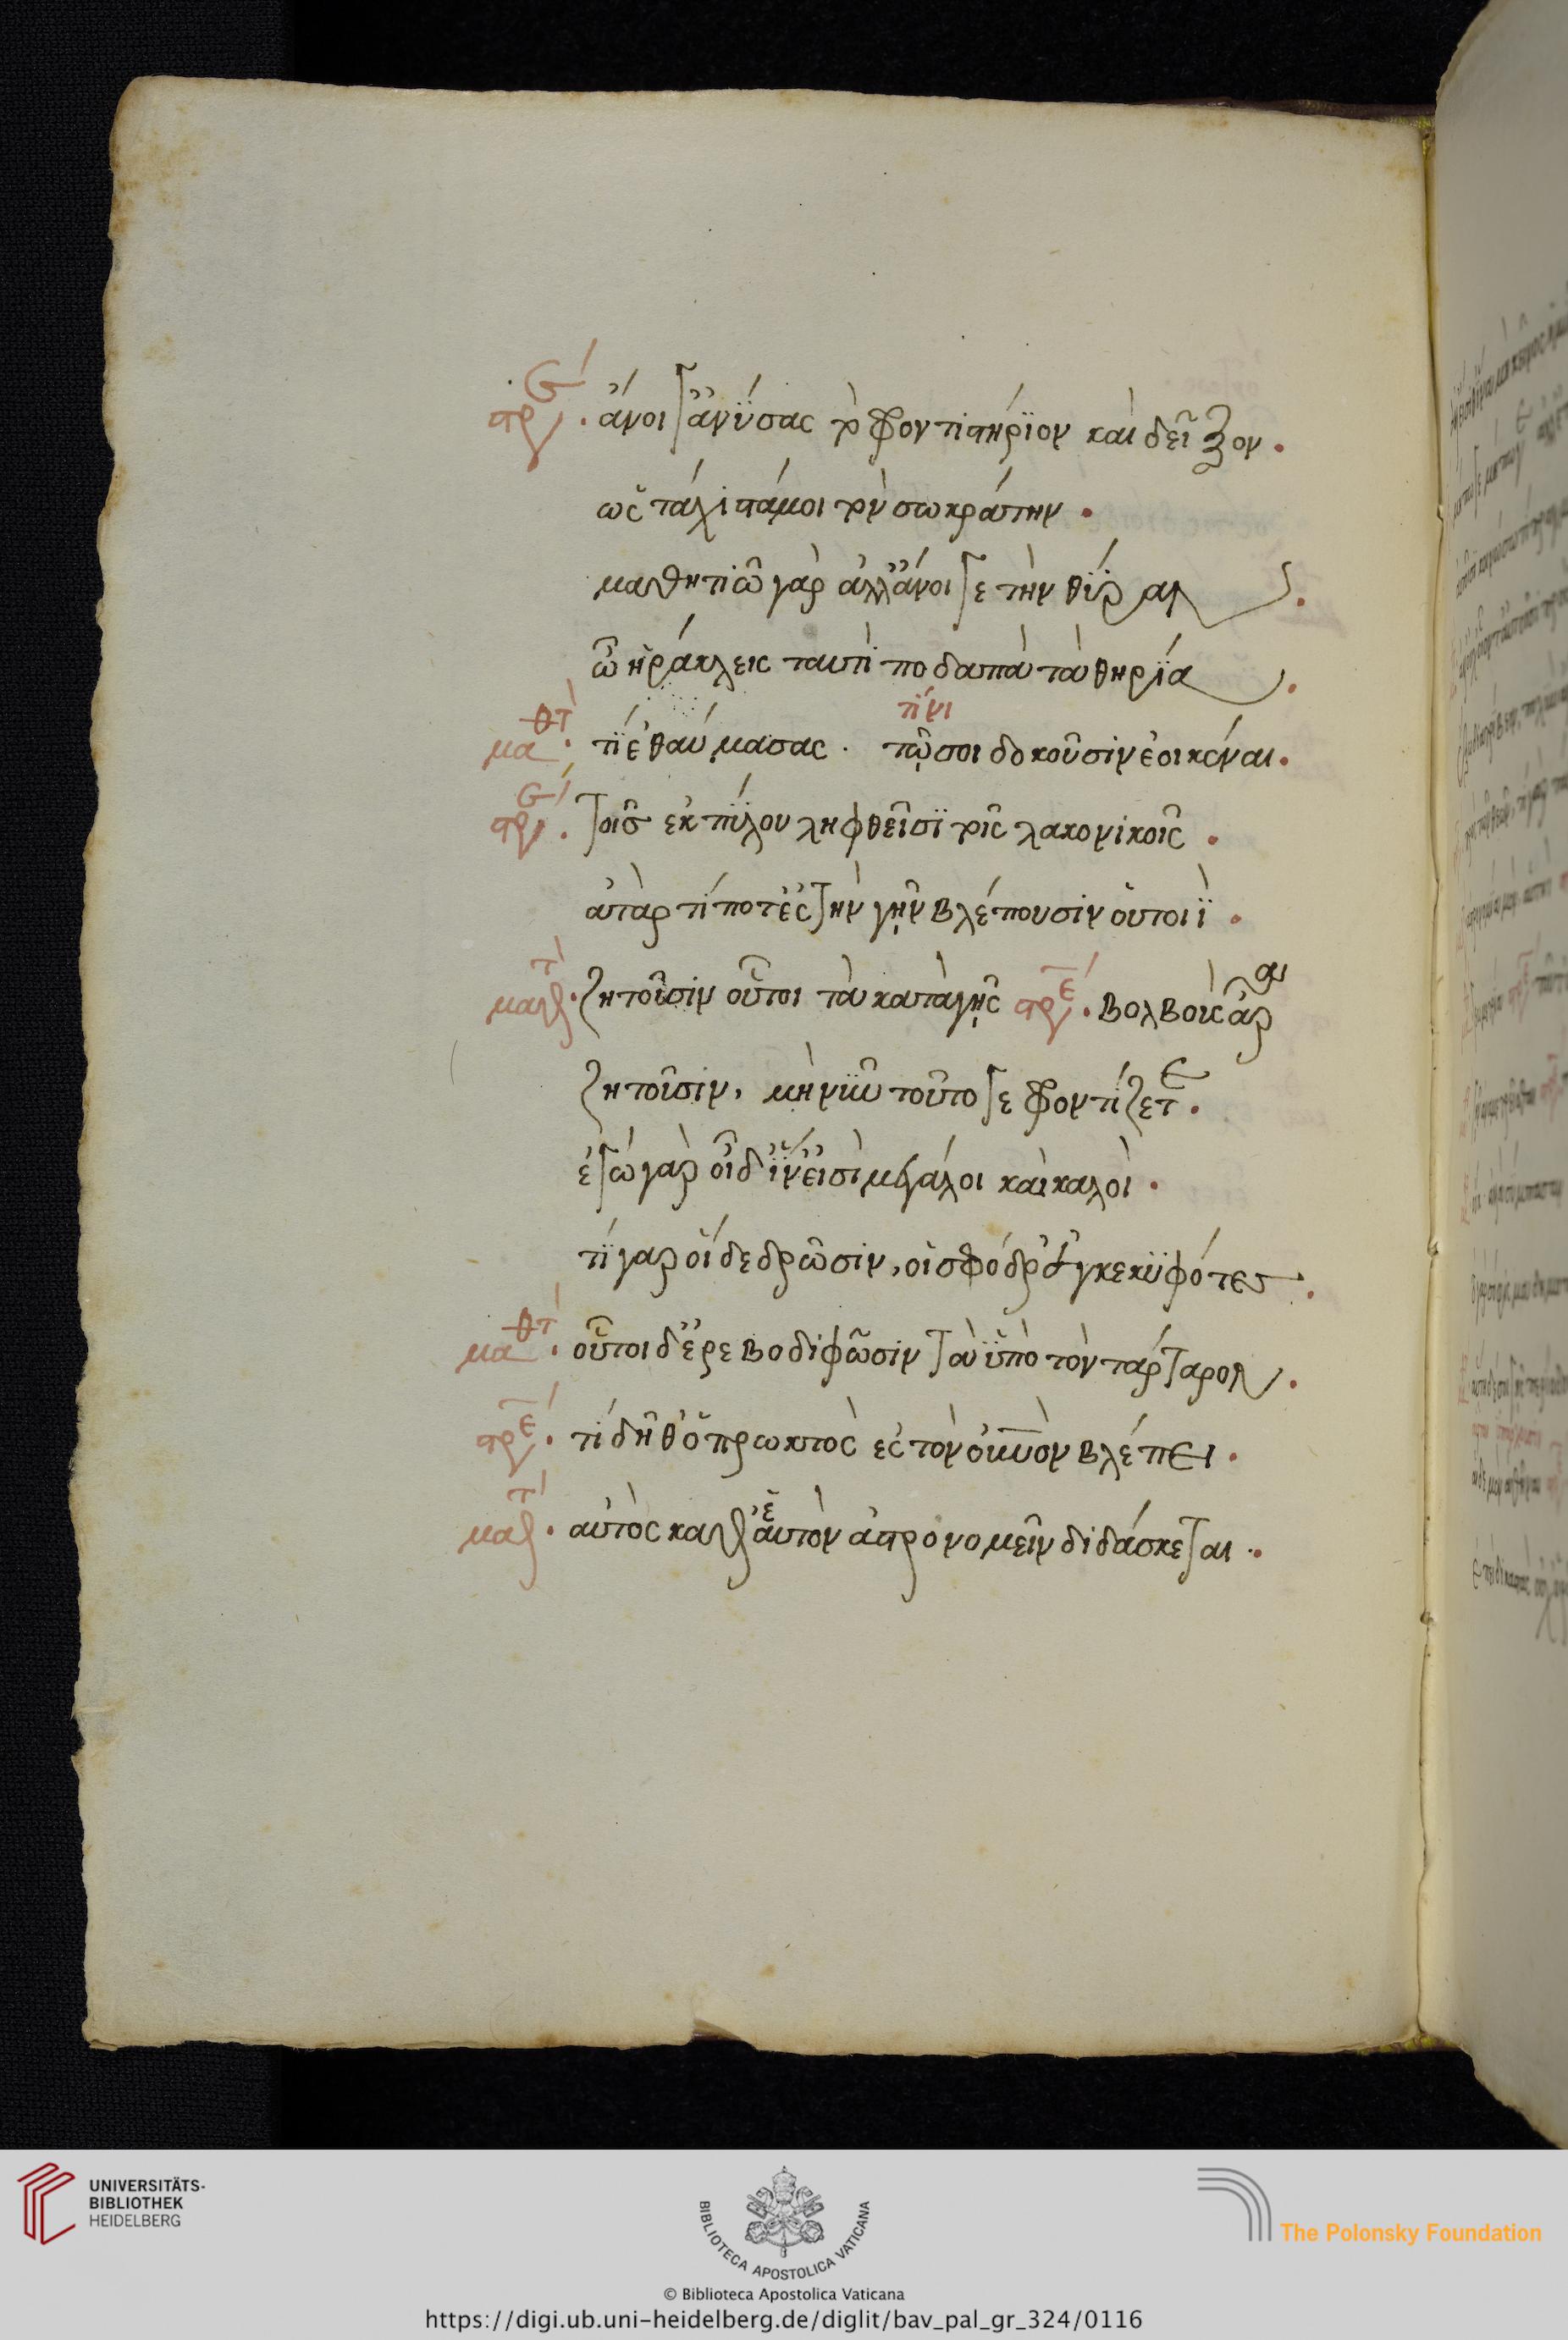 στρε´. ἄνοιγ' ἄνοιγ' ἀνΰσας τὸ φροντιστήριον καὶ δεῖξον.
ὡς τάχιστά μοι τὸν σωκράτην.
μαθητιῶ γὰρ ἀλλ' ἄνοιγε τὴν θΰραν.
ὦ ἡράκλεις ταυτὶ ποδαπὰ τὰ θηρΐα.
τίνι
μαθτ´. τΐ ἐθαύμασας. τῷ σοι δοκοῦσιν ἐοικέναι.
στρ´. τοῖς ἐκ πΰλου ληφθεῖσϊ τοῖς λακονικοῖς.
ἀτὰρ τί ποτ' ἐς τὴν γῆν βλέπουσιν οὑτοιΐ.
μαθτ´. ζητοῦσιν οὗτοι τὰ κατὰ γῆς στρε´. βολβοὺς ἄρα
ζητοῦσιν, μὴ νῦν τοῦτό γε φροντίζετε.
ἐγὼ γὰρ οἶδ' ἵν' εἰσὶ μεγάλοι καὶ καλοὶ.
τΐ γαρ οἵδε δρῶσιν, οἱ σφόδρ' ἐγκεκϋφότες.
μαθτ´. οὗτοι δ' ἐρεβοδιφῶσιν τὰ ὑπὸ τὸν τάρταρον.
στρε´. τί δῆθ' ὁ πρωκτὸς ἐς τὸν οὐνὸν βλέπει.
μαθτ´. αὐτὸς καθ' ἑαυτὸν ἀστρονομεῖν διδάσκεται.
UNIVERSITÄTS-
BIBLIOTHEK
HEIDELBERG
BIBLIOTECA APOSTOLICA VATICANA
The Polonsky Foundation
© Biblioteca Apostolica Vaticana
https://digi.ub.uni-heidelberg.de/diglit/bav_pal_gr_324/0116